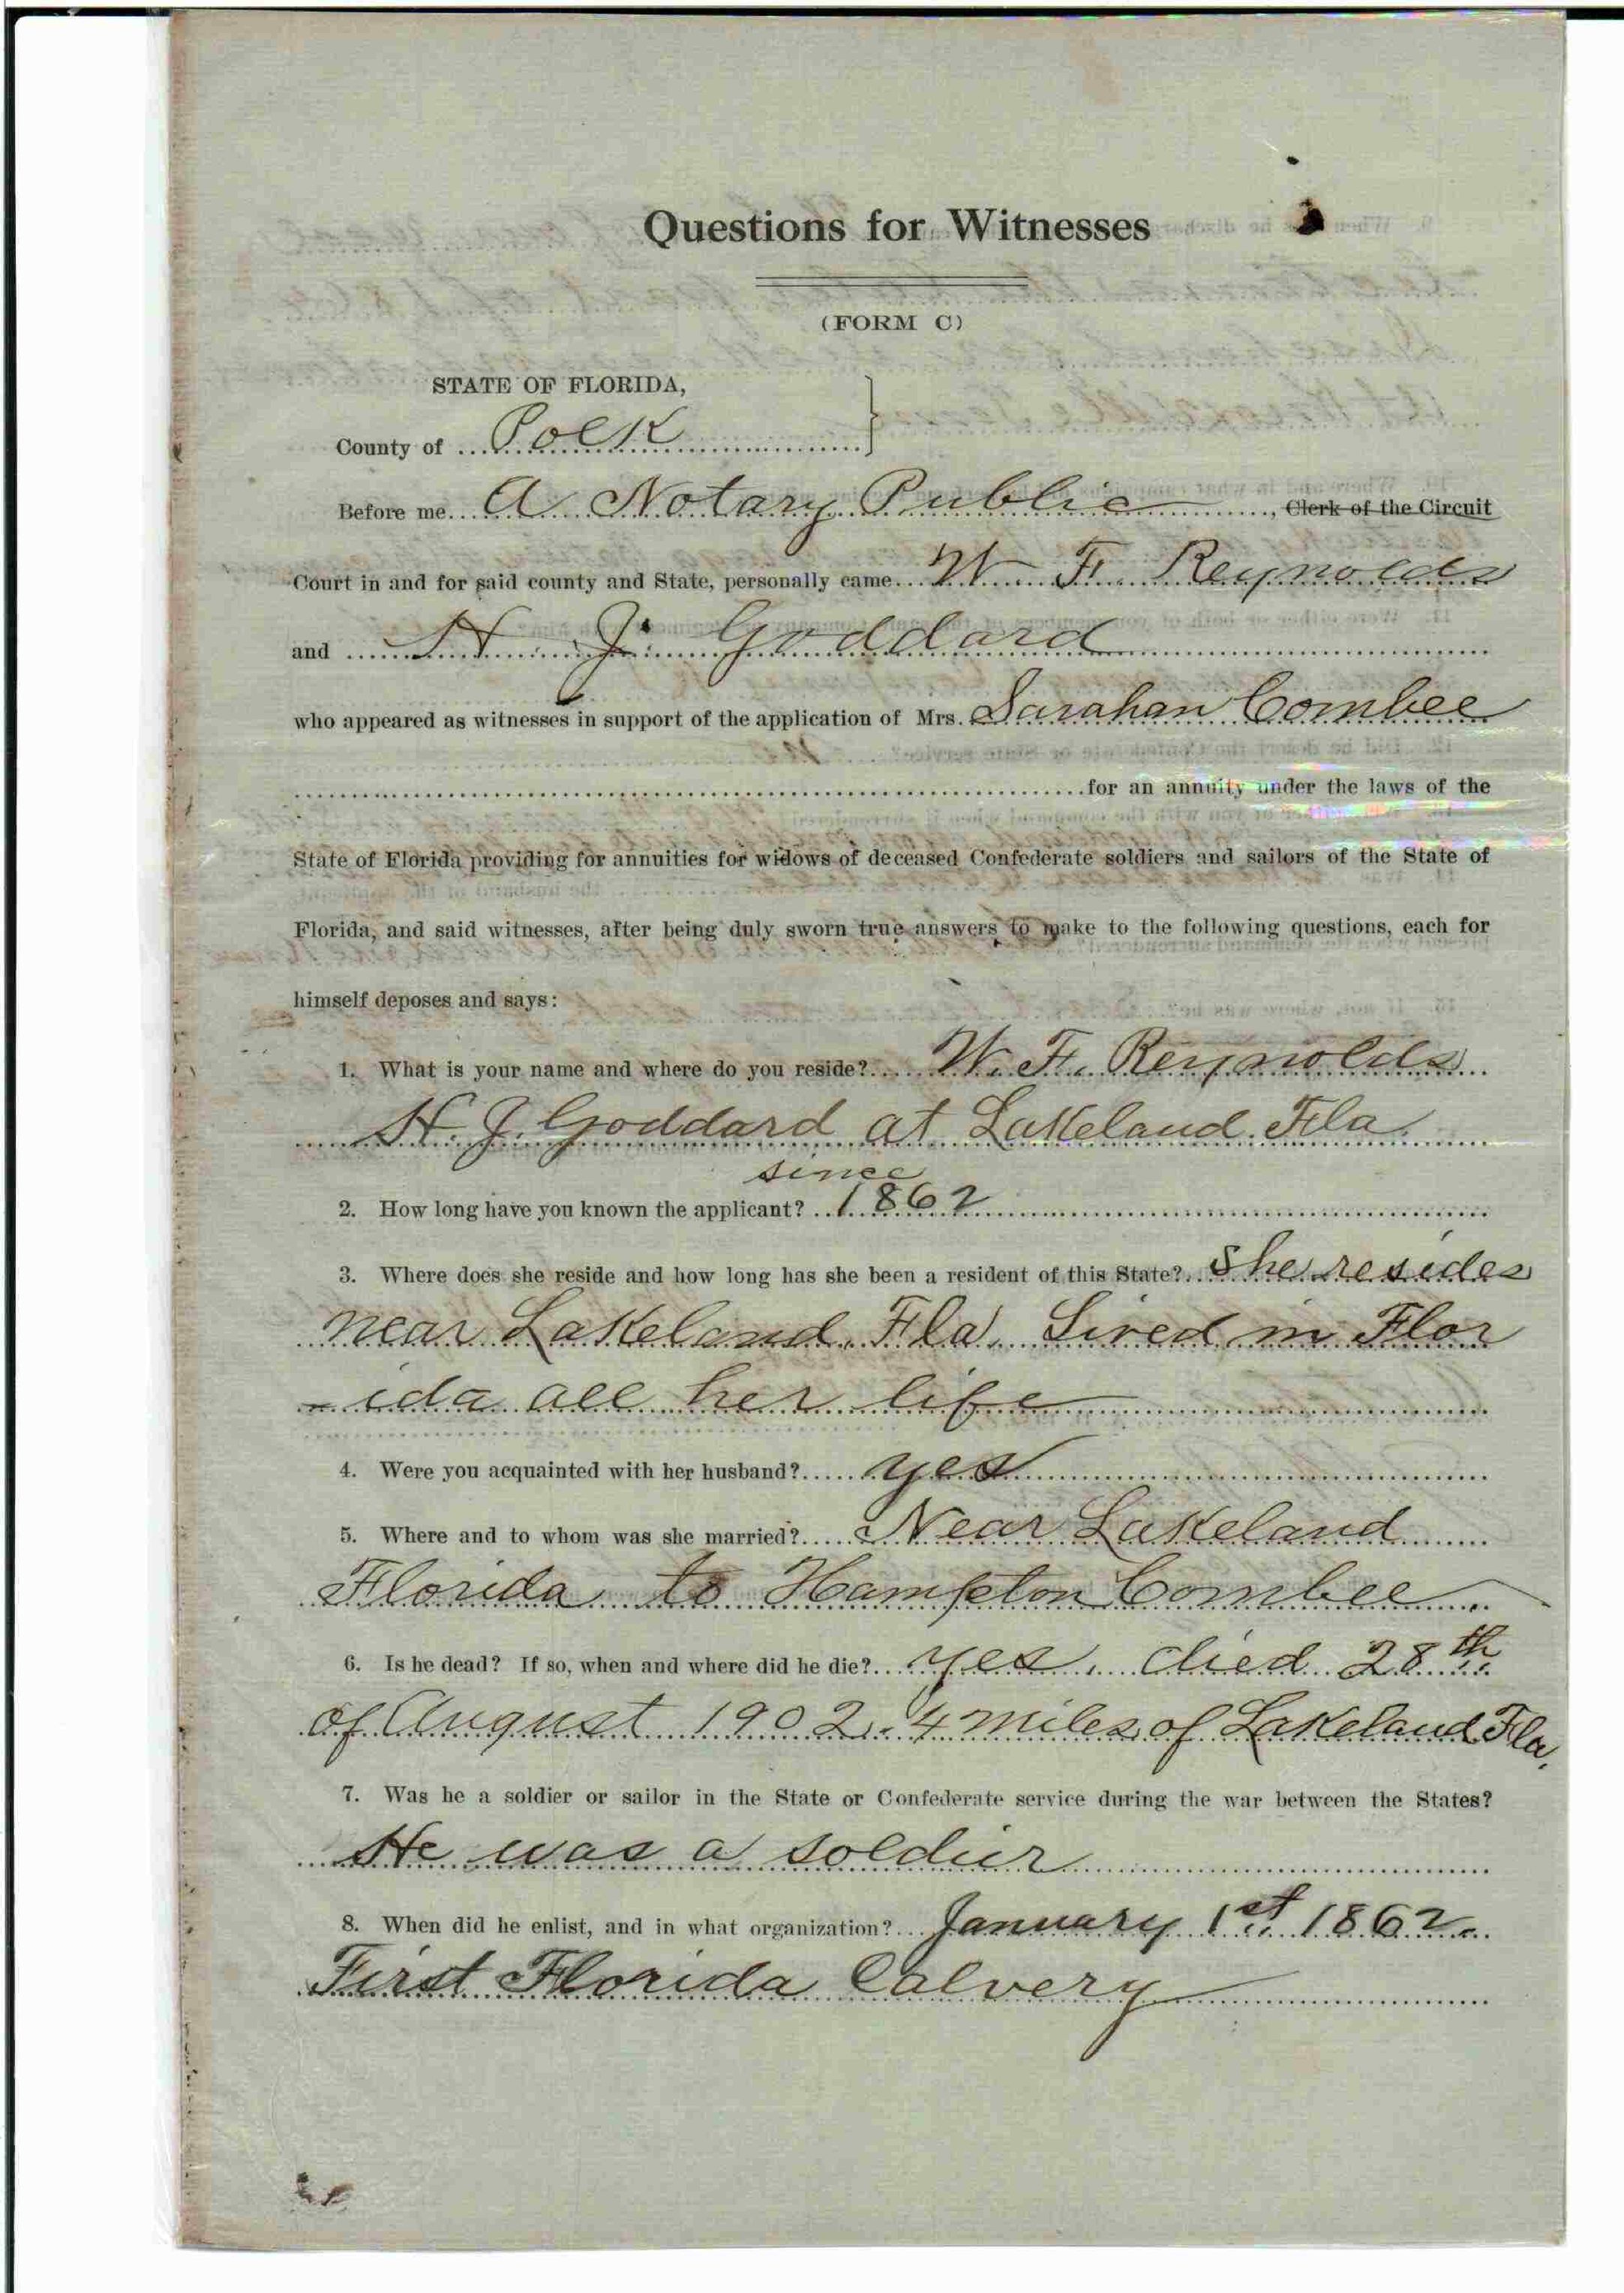 Questions for Witnesses
(FORM C)
STATE OF FLORIDA,
County of Polk
Before me A Notary Public, Clerk of the Circuit
Court in and for said county and State, personally came W. F. Reynolds
and H. J. Goddard
who appeared as witnesses in support of the application of Mrs. Sarahan Combee
for an annuity under the laws of the
State of Florida providing for annuities for widows of deceased Confederate soldiers and sailors of the State of
Florida, and said witnesses, after being duly sworn true answers to make to the following questions, each for
himself deposes and says:
1. What is your name and where do you reside? W. F. Reynolds
H. J. Goddard at Lakeland Fla.
since
2. How long have you known the applicant? 1862
3. Where does she reside and how long has she been a resident of this State? She resides
near Lakeland, Fla. Lived in Flor
-ida all her life
4. Were you acquainted with her husband? yes
5. Where and to whom was she married? Near Lakeland
Florida to Hampton Combee
6. Is he dead? If so, when and where did he die? yes, died 28th
of August 1902. 4 miles of Lakeland Fla.
7. Was he a soldier or sailor in the State or Confederate service during the war between the States?
He was a soldier
8. When did he enlist, and in what organization? January 1st 1862.
First Florida Calvery